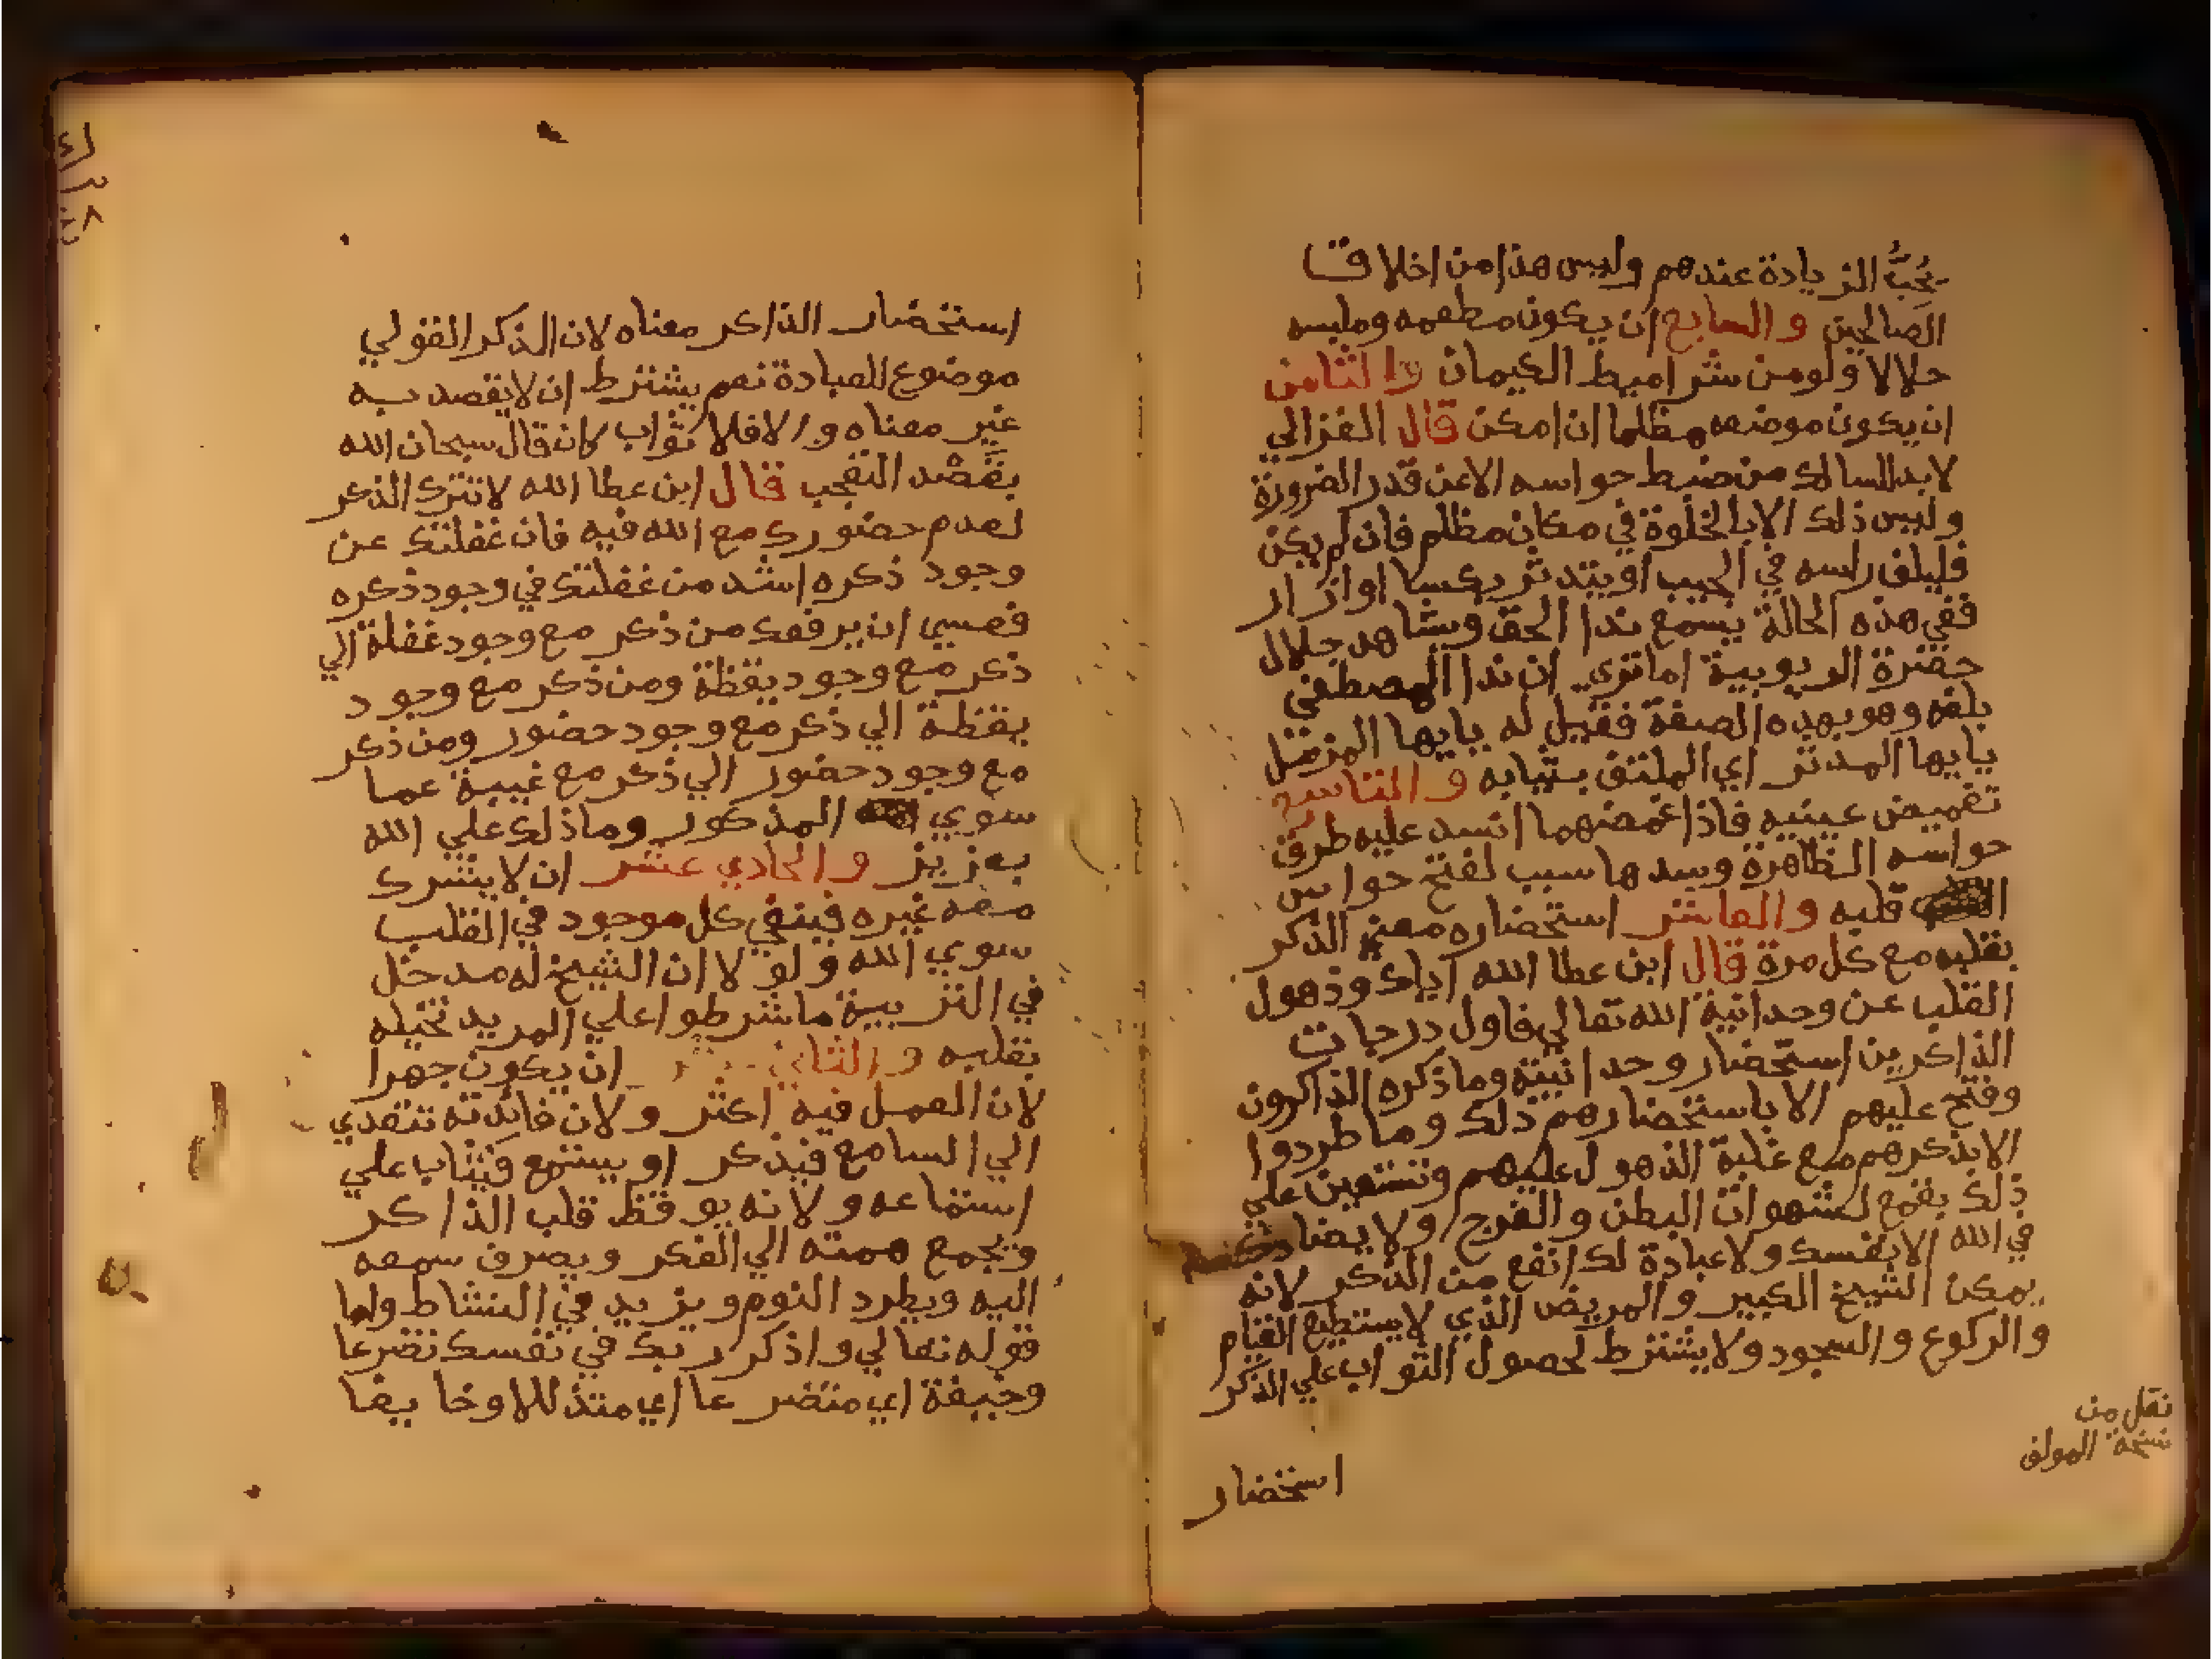 يُحِبُّ الزيادة عندهم وليس هذا من اخلاق
الصالحين والسابع ان يكون مطعمه وملبسه
حلالا ولو من شراميط الكيمان والثامن
ان يكون موضعه مظلما ان امكن قال الغزالي
لابد للسالك من ضبط حواسه الا عن قدر الضرورة
وليس ذلك الا بالخلوة في مكان مظلم فان لم يكن
فليلف راسه في الجيب او يتدثر بكسا او ازار
ففي هذه الحالة يسمع ندا الحق ويشاهد جلال
حضرة الربوبية اما تري ان ندا المصطفي
بلغه وهو بهده الصفة فقيل له يايها المزمل
يايها المدثر اي الملتف بثيابه والتاسع
تغميض عينيه فاذا غمضهما انسد عليه طرق
حواسه الظاهرة وسدها سبب لفتح حواس
قلبه والعاشر استحضاره معني الذكر
بقلبه مع كل مرة قال ابن عطا الله اياك وذهول
القلب عن وحدانية الله تعالي فاول درجات
الذاكرين استحضار وحدانيته وما ذكره الذاكرون
وفتح عليهم الا باستحضارهم ذلك وما طردوا
الا بذكرهم مع غلبة الذهول عليهم وتستعين علي
ذلك بقمع لشهوات البطن والفرج ولا يضادك
في الله الا نفسك ولا عبادة لك انفع من الذكر لانه
يمكن الشيخ الكبير والمريض الذي لا يستطيع القيام
والركوع والسجود ولا يشترط لحصول الثواب علي الذكر
استحضار
نقل من
نسخة المولف
استحضار الذاكر معناه لان الذكر القولي
موضوع للعبادة نعم يشترط ان لا يقصد به
غير معناه والا فلا ثواب كان قال سبحان الله
بقصد التعجب قال ابن عطا الله لا تترك الذكر
لعدم حضورك مع الله فيه فان غفلتك عن
وجود ذكره اشد من غفلتك في وجود ذكره
فعسي ان يرفعك من ذكر مع وجود غفلة الي
ذكر مع وجود يقظة ومن ذكر مع وجود
يقظة الي ذكر مع وجود حضور ومن ذكر
مع وجود حضور الي ذكر مع غيبة عما
سوي المذكور وما ذلك علي الله
بعزيز والحادي عشر ان لا يشرك
معه غيره فينفي كل موجود في القلب
سوي الله ولولا ان الشيخ له مدخل
في التربية ما شرطوا علي المريد تخيله
بقلبه والثاني عشر ان يكون جهرا
لان العمل فيه اكثر ولان فائدته تتعدي
الي السامع فيذكر او يستمع فيثاب علي
استماعه ولانه يوقظ قلب الذاكر
ويجمع همته الي الفكر ويصرف سمعه
اليه ويطرد النوم ويزيد في النشاط واما
قوله تعالي واذكر ربك في نفسك تضرعا
وخيفة اي متضرعا اي متذللا وخايفا